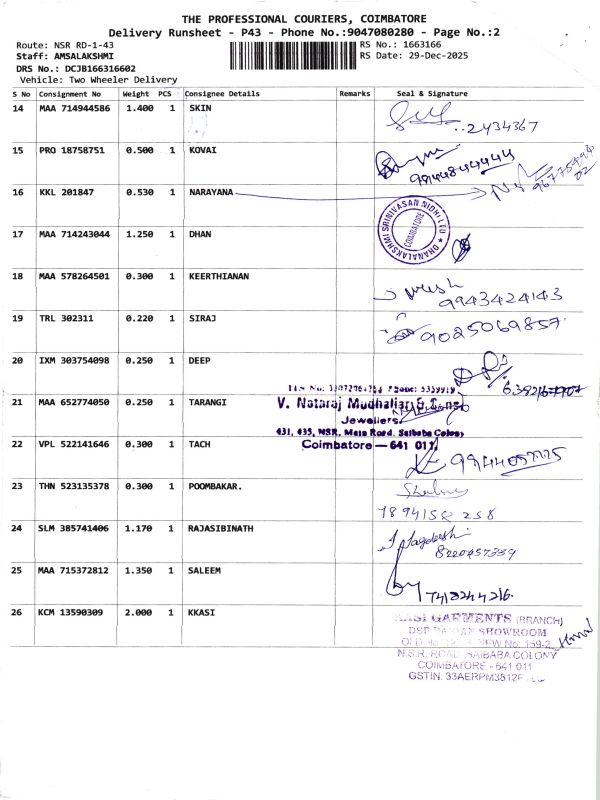 THE PROFESSIONAL COURIERS, COIMBATORE
Delivery Runsheet - P43 - Phone No.:9047080280 - Page No.:2
Route: NSR RD-1-43 RS No.: 1663166
Staff: AMSALAKSHMI RS Date: 29-Dec-2025
DRS No.: DCJB166316602
Vehicle: Two Wheeler Delivery
S No Consignment No Weight PCS Consignee Details Remarks Seal & Signature
14 MAA 714944586 1.400 1 SKIN
..2434367
15 PRO 18758751 0.500 1 KOVAI
9944844444
16 KKL 201847 0.530 1 NARAYANA
DHANALAKSHMI SRINIVASAN NIDHI LTD
COIMBATORE
17 MAA 714243044 1.250 1 DHAN
18 MAA 578264501 0.300 1 KEERTHIANAN
9943424143
19 TRL 302311 0.220 1 SIRAJ
9025069857
20 IXM 303754098 0.250 1 DEEP
21 MAA 652774050 0.250 1 TARANGI
V. Nataraj Mudhaliar & Sons
Jewellers
431, 435, NSR. Main Road, Saibaba Colony
Coimbatore - 641 011
22 VPL 522141646 0.300 1 TACH
23 THN 523135378 0.300 1 POOMBAKAR.
24 SLM 385741406 1.170 1 RAJASIBINATH
Jagdeesh
8220457339
25 MAA 715372812 1.350 1 SALEEM
7418244216.
26 KCM 13590309 2.000 1 KKASI
KASI GARMENTS (BRANCH)
SHOWROOM
NEW No: 159-2
N.S.R. ROAD, SAIBABA COLONY
COIMBATORE - 641 011